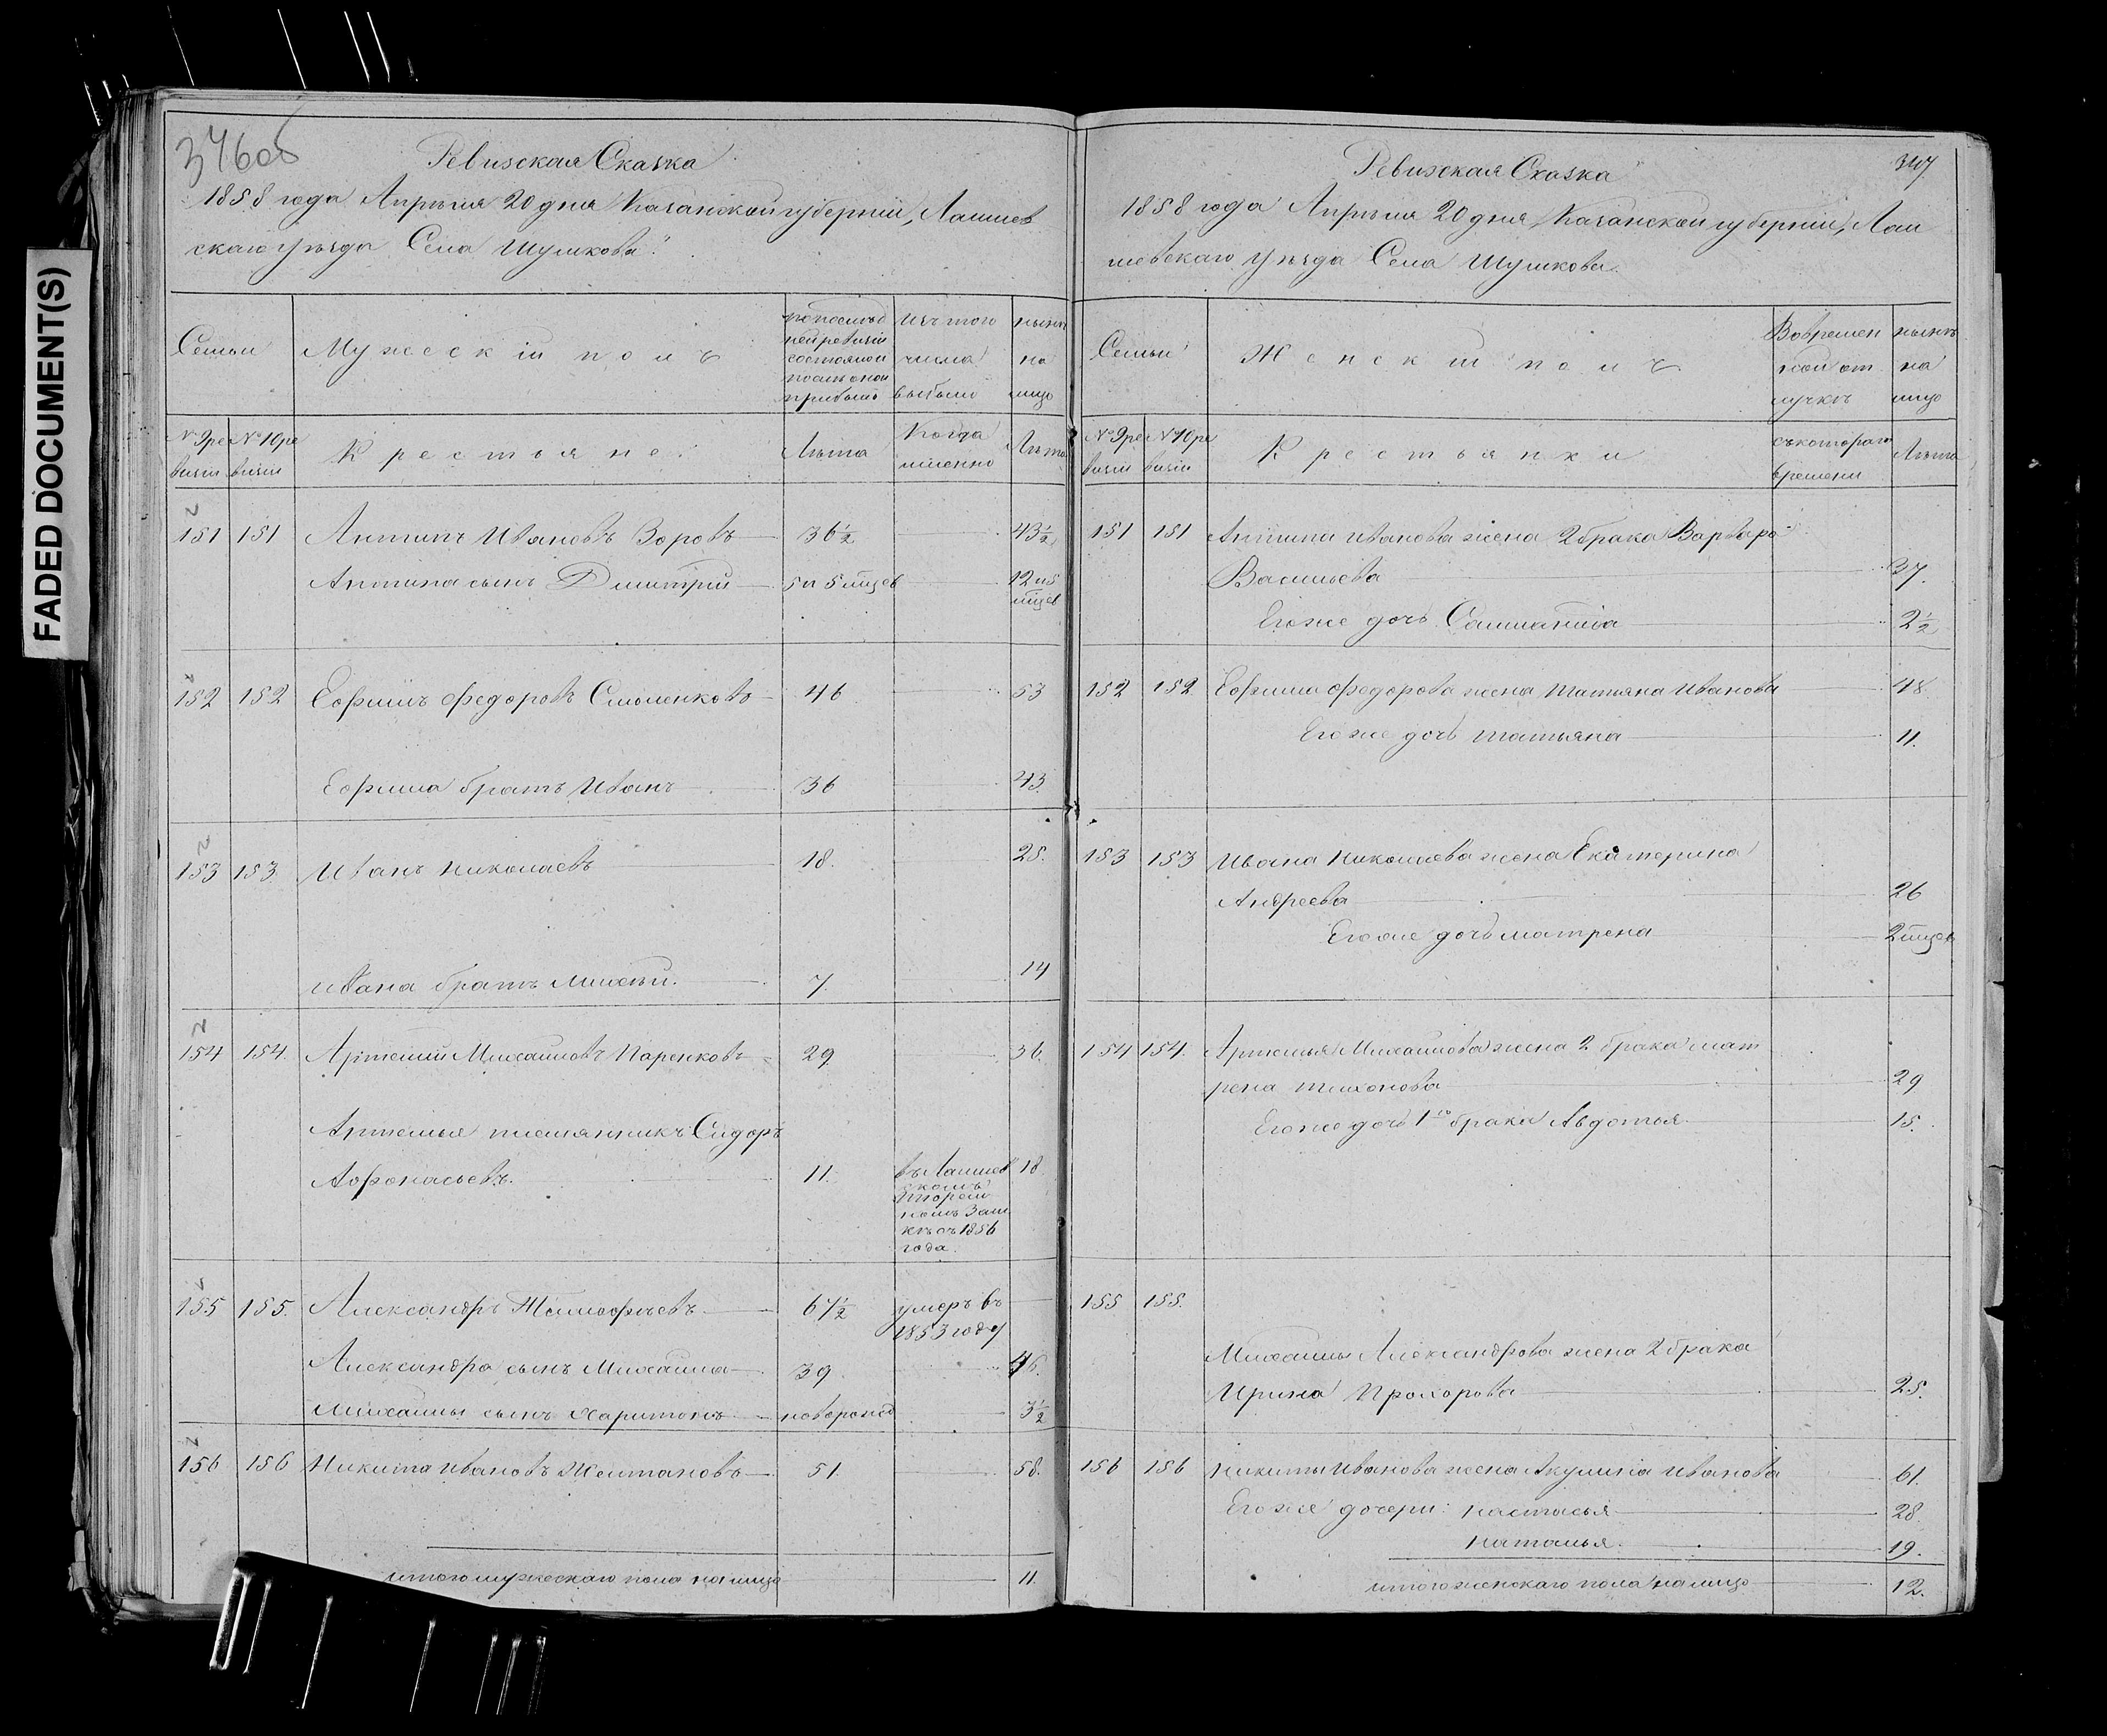 FADED DOCUMENT(S)
346 об
Ревизская Сказка
1858 года Апрѣля 20 дня Казанской губернiи, Лаишев
скаго уѣзда Села Шумкова.
Семьи
Мужескiй полъ
по послѣд
ней ревизiи
состояло и
послѣ оной
прибыло
Изъ того
числа
выбыло
нынѣ
на
лицо
№ 9 ре
визiи
№ 10 ре
визiи
Крестьяне:
Лѣта
Когда
именно
Лѣта
151 151 Антипъ Ивановъ Зоровъ 36½ 43½
Антипа сынъ Дмитрiй 5 и 5 мцев 12 и 5
мцев
152 152 Ефимъ Федоровъ Смоленковъ 46 53
Ефима братъ Иванъ 36 43.
153 153. Иванъ Николаевъ 18. 25.
Ивана братъ Михѣй. 7. 14
154 154. Артемiй Михайловъ Паренковъ 29. 36.
Артемья племянникъ Сидоръ
Афонасьевъ. 11. въ Лаишев 18
скомъ
тюрем
номъ Зам
кѣ съ 1856
года.
155 155. Александръ Тимофѣевъ 67½ умеръ въ
1853 году
Александра сынъ Михаила 39. 46.
Михаилы сынъ Харитонъ новорожд 3½
156 156 Никита Ивановъ Желтановъ 51. 58.
итого мужескаго пола на лицо 11.
Ревизская Сказка 347
1858 года Апрѣля 20 дня, Казанской губернiи, Лаи
шевскаго уѣзда Села Шумкова.
Семьи
Женскiй полъ
Во времен
ной от
лучкѣ
нынѣ
на
лицо
№ 9 ре
визiи
№ 10 ре
визiи
Крестьянки
съ котораго
времени
Лѣта
151 151 Антипа Иванова жена 2 брака Варвара
Васильева 37.
Его же дочь Саламанiя 2½
152 152 Ефима Федорова жена Татьяна Иванова 48.
Его же дочь Татьяна 11.
153 153 Ивана Николаева жена Екатерина
Андреева 26
Его же дочь Матрена 2 мцев
154 154. Артемья Михайлова жена 2 брака Мат
рена Тихонова 29
Его же дочь 1го брака Авдотья 15.
155 155.
Михаилы Александрова жена 2 брака
Ирина Прохорова 25.
156 156 Никиты Иванова жена Акулина Иванова 61.
Его же дочери: Настасья 28.
Наталья. 19.
итого женскаго пола на лицо 12.